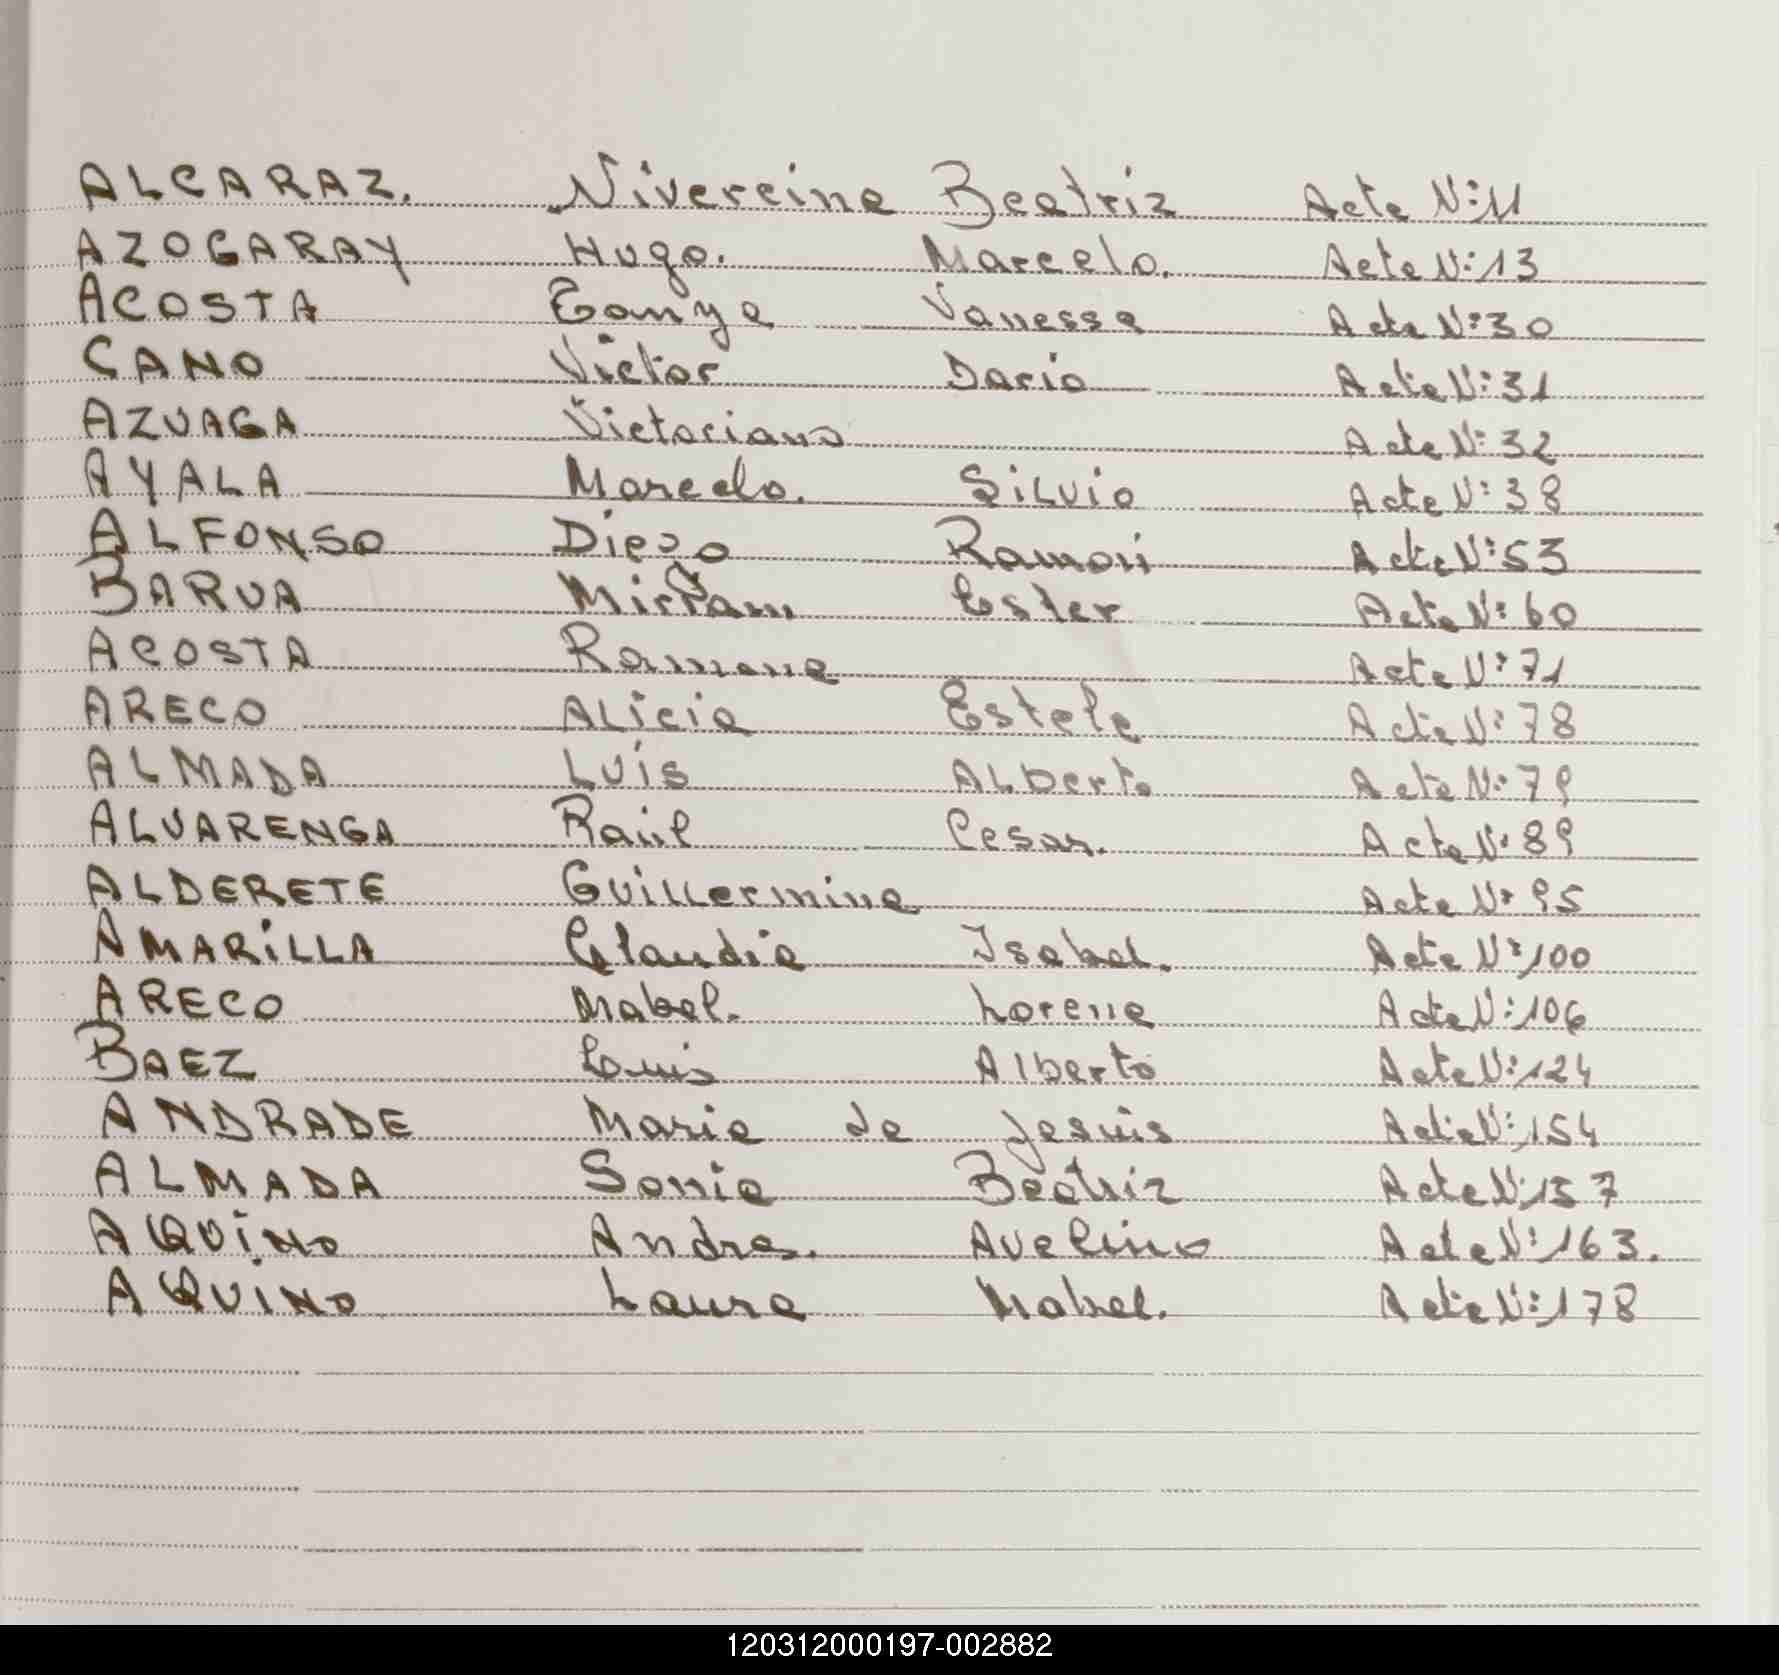 ALCARAZ. Nivercina Beatriz Acta Nº 11
AZOGARAY Hugo. Marcelo. Acta Nº 13
ACOSTA Tanya Vanessa Acta Nº 30
CANO Victor Dario Acta Nº 31
AZUAGA Victoriano Acta Nº 32
AYALA Marcelo. Silvio Acta Nº 38
ALFONSO Diego Ramón Acta Nº 53
BARUA Mirian Ester Acta Nº 60
ACOSTA Ramona Acta Nº 71
ARECO Alicia Estela Acta Nº 78
ALMADA Luis Alberto Acta Nº 79
ALVARENGA Raúl Cesar. Acta Nº 89
ALDERETE Guillermina Acta Nº 95
AMARILLA Claudia Isabel. Acta Nº 100
ARECO Mabel. Lorena Acta Nº 106
BAEZ Luis Alberto Acta Nº 124
ANDRADE Maria de Jesús Acta Nº 154
ALMADA Sonia Beatriz Acta Nº 157
AQUINO Andres. Avelino Acta Nº 163.
AQUINO Laura Mabel. Acta Nº 178
120312000197-002882